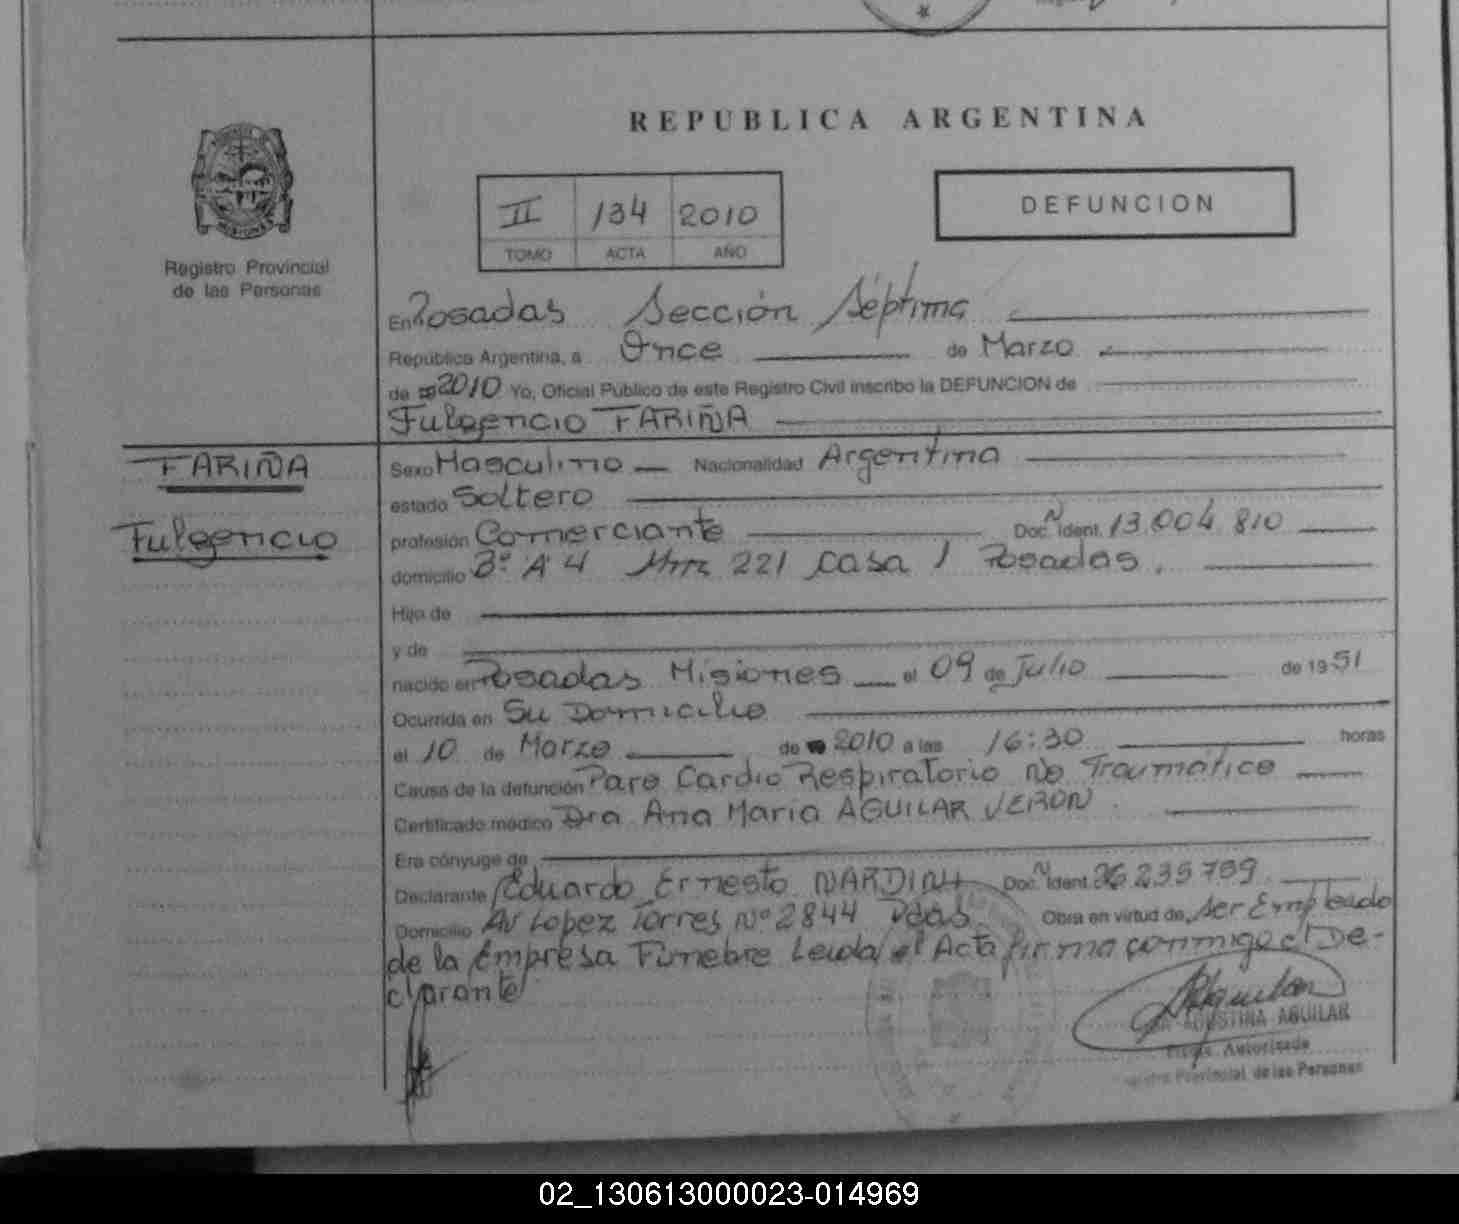 REPUBLICA ARGENTINA
II 134 2010
TOMO ACTA AÑO
DEFUNCION
Registro Provincial
de las Personas
En Posadas Sección Séptima
República Argentina, a Once de Marzo
de 2010 Yo, Oficial Público de este Registro Civil inscribo la DEFUNCION de
Fulgencio FARIÑA
FARIÑA
Fulgencio
Sexo Masculino Nacionalidad Argentina
estado Soltero
profesión Comerciante Doc. N Ident. 13.004.810
domicilio 221 Casa 1 Posadas.
Hijo de
y de
nacido en Posadas Misiones el 09 de Julio de 1951
Ocurrida en Su Domicilio
el 10 de Marzo de 2010 a las 16:30 horas
Causa de la defunción Paro Cardio Respiratorio No Traumático
Certificado médico Dra Ana Maria AGUILAR VERON
Era cónyuge de
Declarante Eduardo Ernesto NARDINI Doc. N Ident. 26.235.759
Domicilio Av Lopez Torres Nº 2844 Pdas Obra en virtud de Ser Empleado
de la Empresa Funebre Leida el Acta firma conmigo el De-
clarante
AGUSTINA AGUILAR
Autorizada
Provincial de las Personas
02_130613000023-014969